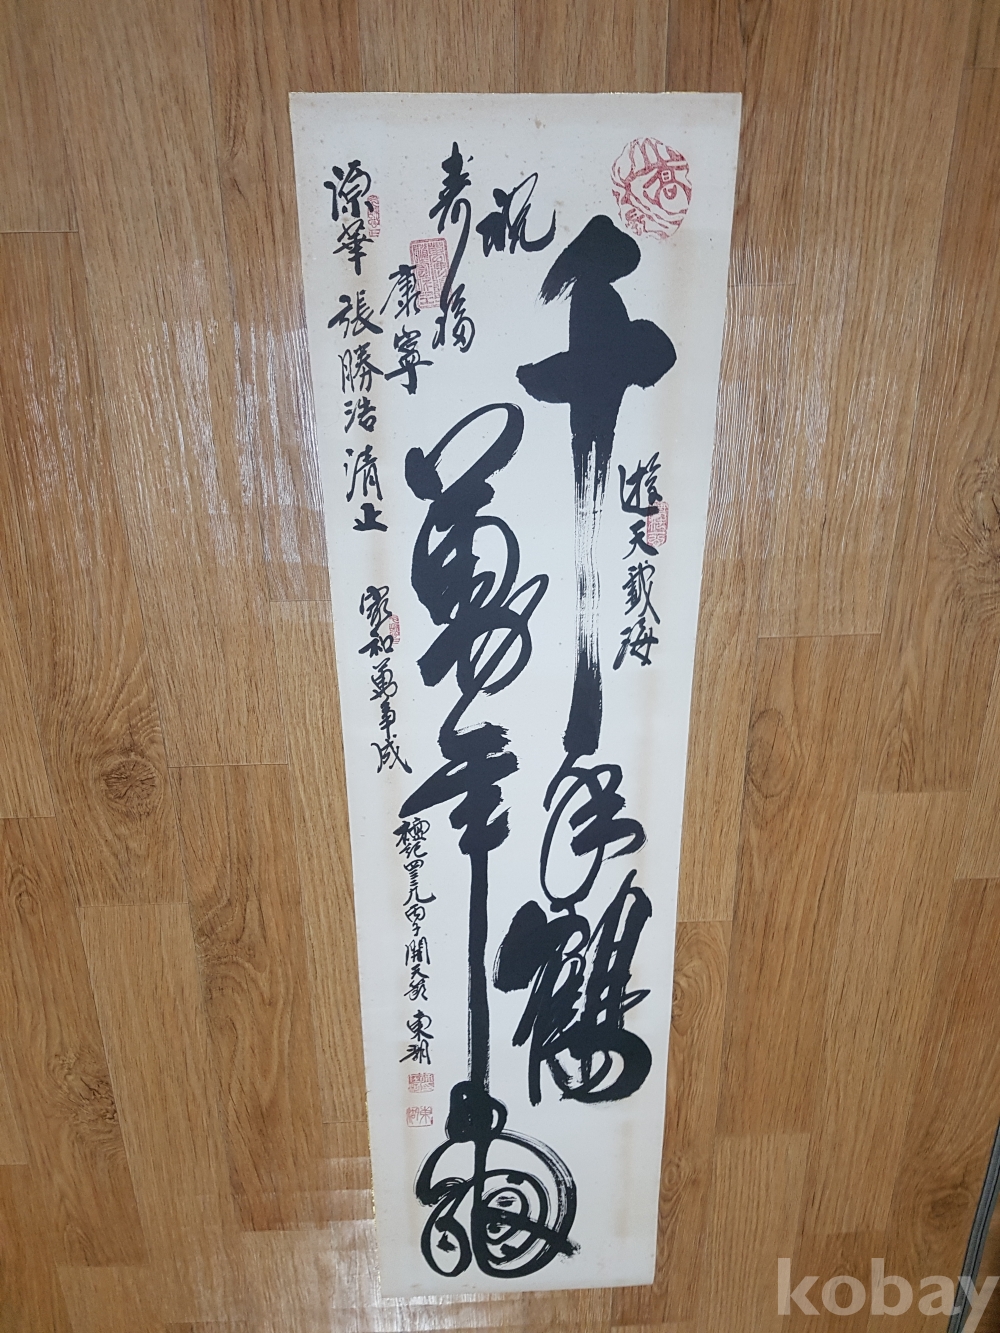 千年鶴
萬年龜
祝
壽福
康寧
遊天戱海
源華 張勝浩 淸止
家和萬事成
檀紀四三二九 丙子 開天節 東湖
kobay